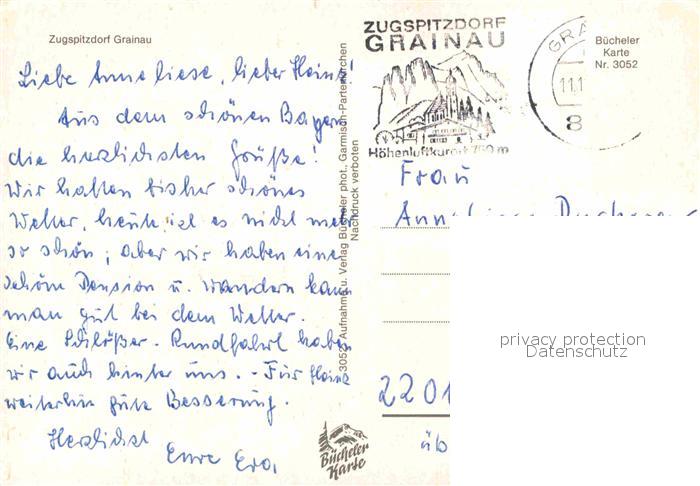 Zugspitzdorf Grainau
Liebe Anneliese, lieber Heinz!
Aus dem schönen Bayern
die herzlichsten Grüße!
Wir hatten bisher schönes
Wetter, heute ist es nicht mehr
so schön; aber wir haben eine
schöne Pension u. wandern kann
man gut bei dem Wetter.
Eine Schlößer-Rundfahrt haben
wir auch hinter uns. - Für Heinz
weiterhin gute Besserung.
Herzlichst
Eure Eva
3052 Aufnahme u. Verlag Bücheler phot., Garmisch-Partenkirchen
Nachdruck verboten
Bücheler
Karte
ZUGSPITZDORF
GRAINAU
Höhenluftkurort 750 m
GRA
11.1
8
Bücheler
Karte
Nr. 3052
Frau
2201
üb
privacy protection
Datenschutz